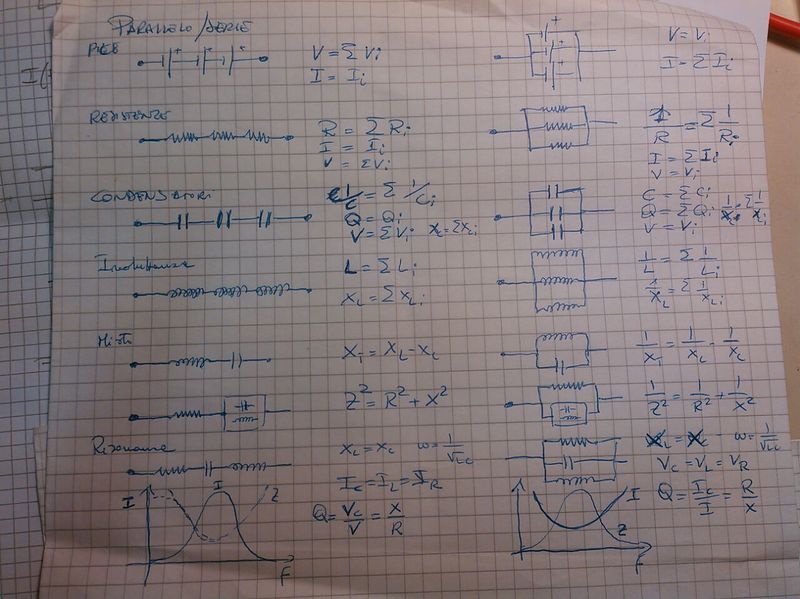 PARALLELO/SERIE
V = Σ Vi
I = Ii
V = Vi
I = Σ Ii
RESISTENZE
R = Σ Ri
I = Ii
V = ΣVi
1/R = Σ 1/Ri
I = Σ Ii
V = Vi
CONDENSATORI
1/C = Σ 1/Ci
Q = Qi
V = Σ Vi Xc = ΣXci
C = Σ Ci
Q = Σ Qi 1/Xc = Σ 1/Xci
V = Vi
Induttanze
L = Σ Li
XL = Σ XLi
1/L = Σ 1/Li
1/XL = Σ 1/XLi
Misti
XT = XL - Xc
Z² = R² + X²
1/Z² = 1/R² + 1/X²
Risonanza
XL = Xc ω = 1/√LC
Ic = IL = IR
Q = Vc/V = X/R
XL = Xc ω = 1/√LC
Vc = VL = VR
Q = Ic/I = R/X
I I Z
F
I
Z
F